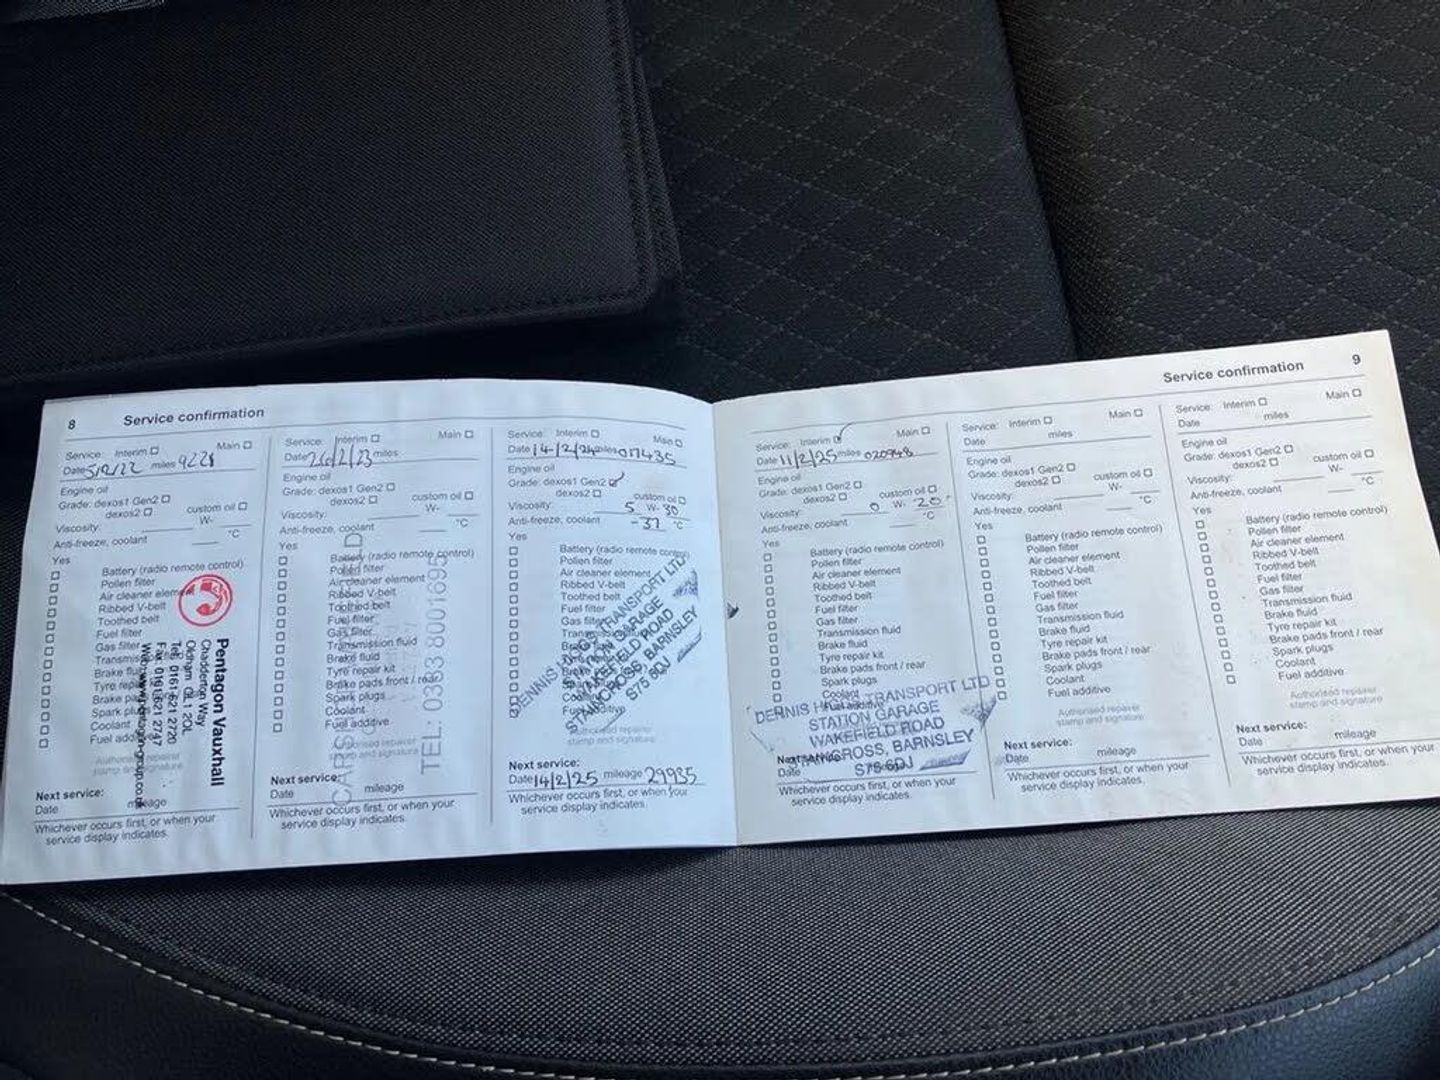 8 Service confirmation
Service: Interim Main
Date 5/2/22 miles 9221
Engine oil
Grade: dexos1 Gen2
dexos2 custom oil
Viscosity: W-
Anti-freeze, coolant °C
Yes
Battery (radio remote control)
Pollen filter
Air cleaner element
Ribbed V-belt
Toothed belt
Fuel filter
Gas filter
Brake
Tyre
Spark
Coolant
Fuel
Pentagon Vauxhall
Chadderton Way
Oldham OL1 2QL
Tel: 0161 621 2720
Fax: 0161 621 2747
Authorised repairer
stamp and signature
Next service:
Date mileage
Whichever occurs first, or when your
service display indicates.
Service: Interim Main
Date 26/2/23 miles
Engine oil
Grade: dexos1 Gen2
dexos2 custom oil
Viscosity: W-
Anti-freeze, coolant °C
Yes
Battery (radio remote control)
Pollen filter
Air cleaner element
Ribbed V-belt
Toothed belt
Fuel filter
Gas filter
Transmission fluid
Brake fluid
Tyre repair kit
Brake pads front / rear
Spark plugs
Coolant
Fuel additive
TEL: 0333 8001695
Authorised repairer
stamp and signature
Next service:
Date mileage
Whichever occurs first, or when your
service display indicates.
Service: Interim Main
Date 14/2/24 miles 017435
Engine oil
Grade: dexos1 Gen2
dexos2 custom oil
Viscosity: 5 W-30
Anti-freeze, coolant -37 °C
Yes
Battery (radio remote control)
Pollen filter
Air cleaner element
Ribbed V-belt
Toothed belt
Fuel filter
Gas filter
TRANSPORT LTD
GARAGE
WAKEFIELD ROAD
STAINCROSS, BARNSLEY
S75 6DJ
Authorised repairer
stamp and signature
Next service:
Date 14/2/25 mileage 29935
Whichever occurs first, or when your
service display indicates.
Service confirmation 9
Service: Interim Main
Date 11/2/25 miles 020948
Engine oil
Grade: dexos1 Gen2
dexos2 custom oil
Viscosity: 0 W-20
Anti-freeze, coolant °C
Yes
Battery (radio remote control)
Pollen filter
Air cleaner element
Ribbed V-belt
Toothed belt
Fuel filter
Gas filter
Transmission fluid
Brake fluid
Tyre repair kit
Brake pads front / rear
Spark plugs
Coolant
Fuel additive
DENNIS TRANSPORT LTD
STATION GARAGE
WAKEFIELD ROAD
STAINCROSS, BARNSLEY
S75 6DJ
Next service:
Date
Whichever occurs first, or when your
service display indicates.
Service: Interim Main
Date miles
Engine oil
Grade: dexos1 Gen2
dexos2 custom oil
Viscosity: W-
Anti-freeze, coolant °C
Yes
Battery (radio remote control)
Pollen filter
Air cleaner element
Ribbed V-belt
Toothed belt
Fuel filter
Gas filter
Transmission fluid
Brake fluid
Tyre repair kit
Brake pads front / rear
Spark plugs
Coolant
Fuel additive
Authorised repairer
stamp and signature
Next service:
Date mileage
Whichever occurs first, or when your
service display indicates.
Service: Interim Main
Date miles
Engine oil
Grade: dexos1 Gen2
dexos2 custom oil
Viscosity: W-
Anti-freeze, coolant °C
Yes
Battery (radio remote control)
Pollen filter
Air cleaner element
Ribbed V-belt
Toothed belt
Fuel filter
Gas filter
Transmission fluid
Brake fluid
Tyre repair kit
Brake pads front / rear
Spark plugs
Coolant
Fuel additive
Authorised repairer
stamp and signature
Next service:
Date mileage
Whichever occurs first, or when your
service display indicates.